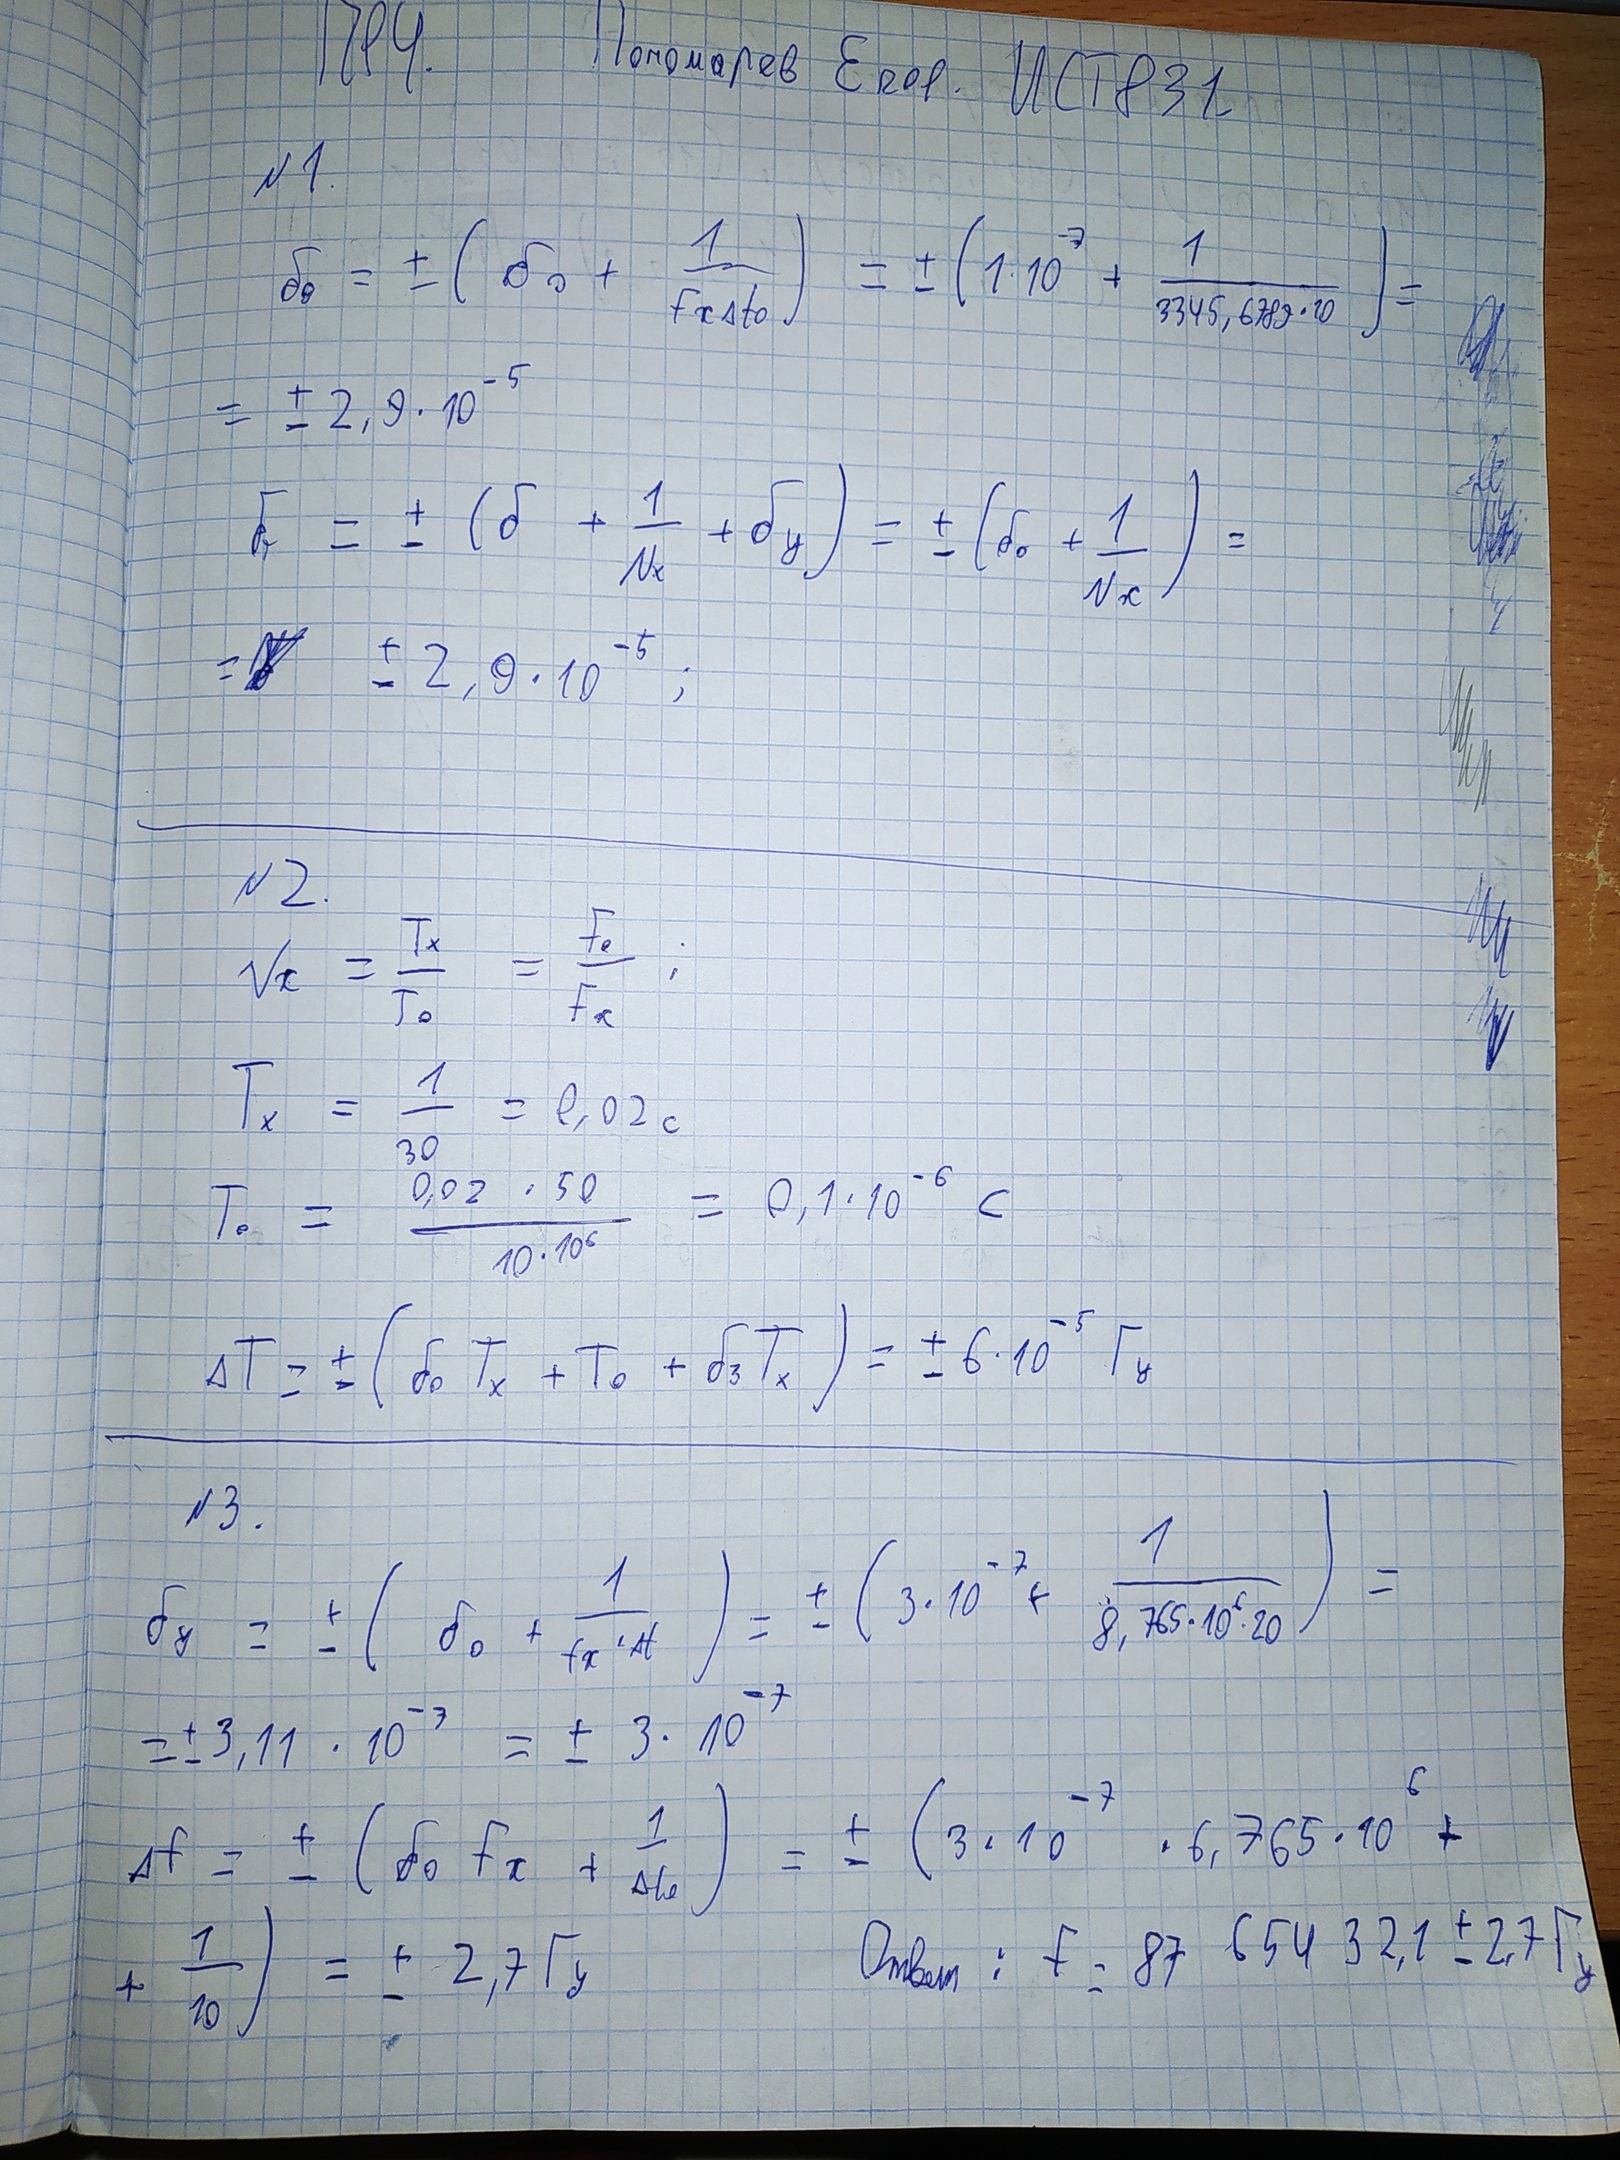 ПР4. Пономарев Егор. ИСТ831
N1.
δ₀ = ± (δ₀ + 1/(fxΔt₀)) = ± (1·10⁻⁷ + 1/(3345,6789·10)) =
= ± 2,9·10⁻⁵
= ± (δ + 1/Nx + δy) = ± (δ₀ + 1/Nx) =
= ± 2,9·10⁻⁵;
N2.
Nx = Tx/T₀ = f₀/fx;
Tx = 1/30 = 0,02 c
T₀ = (0,02 · 50)/(10·10⁶) = 0,1·10⁻⁶ c
ΔT = ± (δ₀ Tx + T₀ + δ₃ Tx) = ± 6·10⁻⁵ Гц
N3.
δy = ± (δ₀ + 1/(fx·Δt)) = ± (3·10⁻⁷ + 1/(8,765·10⁶·20)) =
= ± 3,11 · 10⁻⁷ = ± 3·10⁻⁷
Δf = ± (δ₀ fx + 1/Δt₀) = ± (3·10⁻⁷ · 6,765·10⁶ +
+ 1/10) = ± 2,7 Гц Ответ: f = 87 654 32,1 ± 2,7 Гц